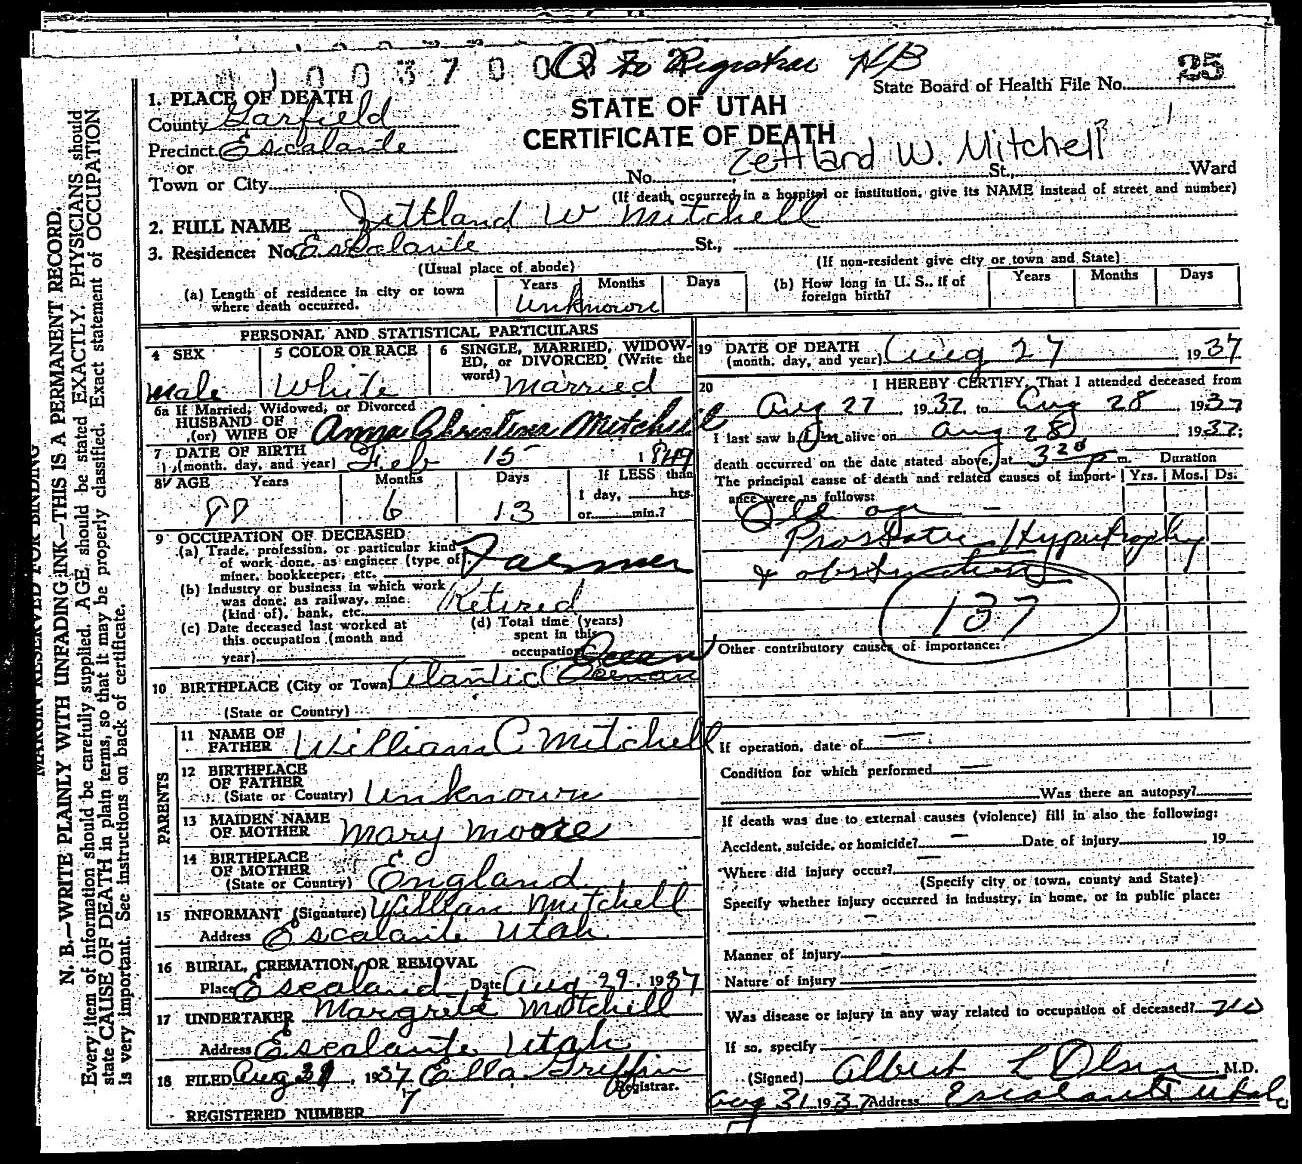 1003700
to Registrar HB
State Board of Health File No. 25
STATE OF UTAH
CERTIFICATE OF DEATH
1. PLACE OF DEATH
County Garfield
Precinct Escalante
or
Town or City
No. St., Ward
Zettland W. Mitchell
(If death occurred in a hospital or institution, give its NAME instead of street and number)
2. FULL NAME Zettland W Mitchell
3. Residence: No. Escalante St.,
(Usual place of abode)
(If non-resident give city or town and State)
(a) Length of residence in city or town where death occurred.
Years Months Days
Unknown
(b) How long in U. S., if of foreign birth?
Years Months Days
PERSONAL AND STATISTICAL PARTICULARS
4 SEX
Male
5 COLOR OR RACE
White
6 SINGLE, MARRIED, WIDOWED, or DIVORCED (Write the word) Married
6a If Married, Widowed, or Divorced
HUSBAND OF
(or) WIFE OF Anna Christina Mitchell
7 DATE OF BIRTH
(month, day, and year) Feb 15 1849
8 AGE Years Months Days
88 6 13
If LESS than
1 day, hrs.
or min.?
9 OCCUPATION OF DECEASED
(a) Trade, profession, or particular kind of work done, as engineer (type of), miner, bookkeeper, etc. Farmer
(b) Industry or business in which work was done, as railway, mine (kind of), bank, etc. Retired
(c) Date deceased last worked at this occupation (month and year)
(d) Total time (years) spent in this occupation
Ocean
10 BIRTHPLACE (City or Town) Atlantic
(State or Country)
PARENTS
11 NAME OF FATHER William C Mitchell
12 BIRTHPLACE OF FATHER
(State or Country) Unknown
13 MAIDEN NAME OF MOTHER Mary Moore
14 BIRTHPLACE OF MOTHER
(State or Country) England
15 INFORMANT (Signature) William Mitchell
Address Escalante Utah
16 BURIAL, CREMATION, OR REMOVAL
Place Escaland Date Aug 29 1937
17 UNDERTAKER Margreta Mitchell
Address Escalante Utah
18 FILED Aug 31, 1937 Ella Griffin
Registrar.
REGISTERED NUMBER 7
19 DATE OF DEATH
(month, day, and year) Aug 27 1937
20 I HEREBY CERTIFY, That I attended deceased from
Aug 27, 1937, to Aug 28 1937
I last saw him alive on Aug 28 1937;
death occurred on the date stated above, at 3 20 p m. Duration
The principal cause of death and related causes of importance were as follows:
Yrs. Mos. Ds.
Old age
Prostatic Hypertrophy
& obstruction
137
Other contributory causes of importance:
If operation, date of
Condition for which performed
Was there an autopsy?
If death was due to external causes (violence) fill in also the following:
Accident, suicide, or homicide? Date of injury 19
Where did injury occur?
(Specify city or town, county and State)
Specify whether injury occurred in industry, in home, or in public place:
Manner of injury
Nature of injury
Was disease or injury in any way related to occupation of deceased? no
If so, specify
(Signed) Albert L Olsen M.D.
Aug 31 1937 Address Escalante Utah
MARGIN RESERVED FOR BINDING
N. B.—WRITE PLAINLY WITH UNFADING INK—THIS IS A PERMANENT RECORD.
Every item of information should be carefully supplied. AGE should be stated EXACTLY. PHYSICIANS should
state CAUSE OF DEATH in plain terms, so that it may be properly classified. Exact statement of OCCUPATION
is very important. See instructions on back of certificate.